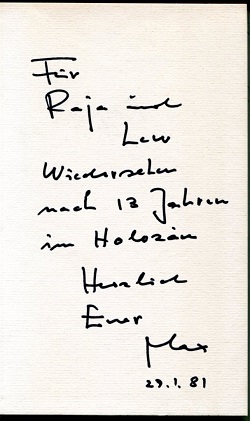 Für
Raja und
Lew
Wiedersehen
nach 13 Jahren
im Holozän
Herzlich
Euer
Max
29.1.81